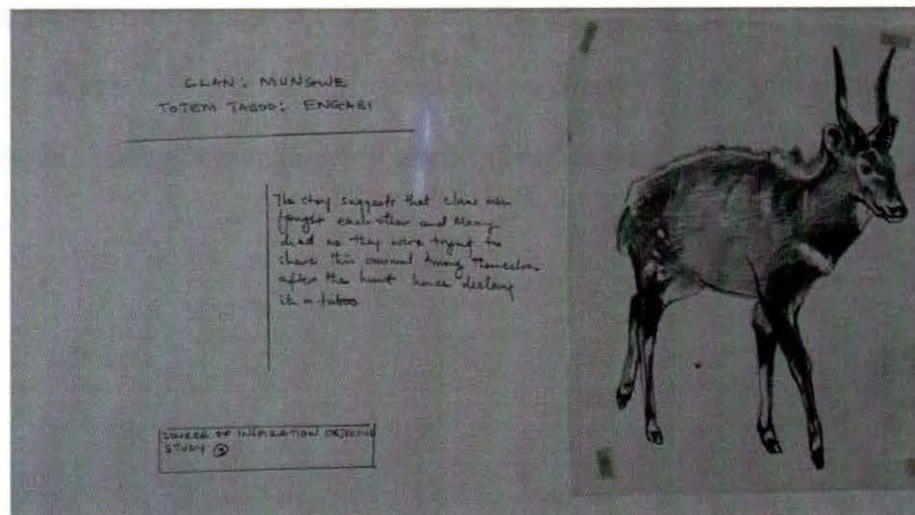 CLAN: MUNGWE
TOTEM TABOO: ENGABI
The story suggests that clans men
fought each other and many
died as they were trying to
share this animal among themselves
after the hunt hence declaring
it a taboo
SOURCE OF INSPIRATION OBJECTIVE
STUDY ②